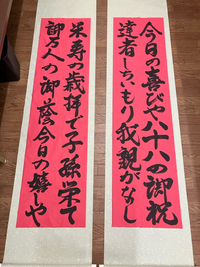 今日の喜びや八十八の御祝
達者しちいもり我親がなし
米寿の歳拝で子孫栄て
御万人の御蔭今日の嬉しや